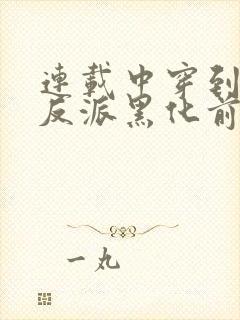 連載中穿到
反派黑化前
一丸